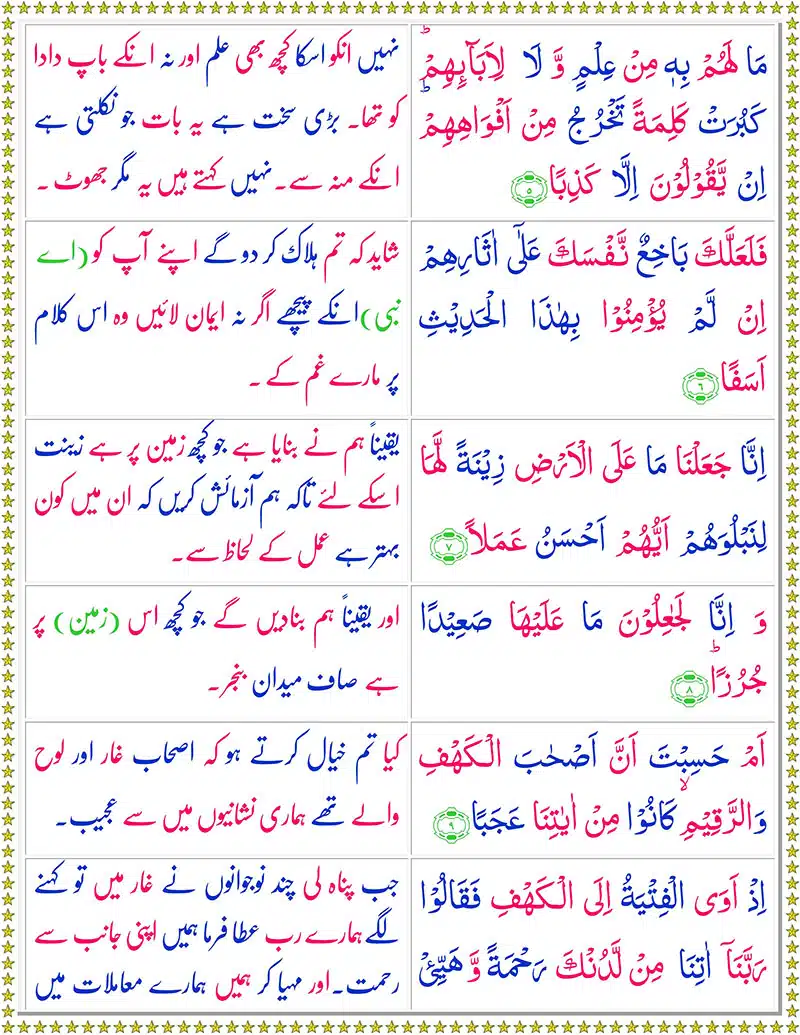 مَا لَهُمْ بِهٖ مِنْ عِلْمٍ وَّ لَا لِاٰبَآىِٕهِمْؕ
كَبُرَتْ كَلِمَةً تَخْرُجُ مِنْ اَفْوَاهِهِمْؕ
اِنْ یَّقُوْلُوْنَ اِلَّا كَذِبًا ۝۵
نہیں انکو اسکا کچھ بھی علم اور نہ انکے باپ دادا
کو تھا۔ بڑی سخت ہے یہ بات جو نکلتی ہے
انکے منہ سے۔ نہیں کہتے ہیں یہ مگر جھوٹ۔
فَلَعَلَّكَ بَاخِعٌ نَّفْسَكَ عَلٰۤى اٰثَارِهِمْ
اِنْ لَّمْ یُؤْمِنُوْا بِهٰذَا الْحَدِیْثِ
اَسَفًا ۝۶
شاید کہ تم ہلاک کر دو گے اپنے آپ کو (اے
نبی) انکے پیچھے اگر نہ ایمان لائیں وہ اس کلام
پر مارے غم کے۔
اِنَّا جَعَلْنَا مَا عَلَى الْاَرْضِ زِیْنَةً لَّهَا
لِنَبْلُوَهُمْ اَیُّهُمْ اَحْسَنُ عَمَلًا ۝۷
یقیناً ہم نے بنایا ہے جو کچھ زمین پر ہے زینت
اسکے لئے تاکہ ہم آزمائش کریں کہ ان میں کون
بہتر ہے عمل کے لحاظ سے۔
وَ اِنَّا لَجٰعِلُوْنَ مَا عَلَیْهَا صَعِیْدًا
جُرُزًاؕ ۝۸
اور یقیناً ہم بنادیں گے جو کچھ اس (زمین) پر
ہے صاف میدان بنجر۔
اَمْ حَسِبْتَ اَنَّ اَصْحٰبَ الْكَهْفِ
وَالرَّقِیْمِۙ كَانُوْا مِنْ اٰیٰتِنَا عَجَبًا ۝۹
کیا تم خیال کرتے ہو کہ اصحاب غار اور لوح
والے تھے ہماری نشانیوں میں سے عجیب۔
اِذْ اَوَى الْفِتْیَةُ اِلَى الْكَهْفِ فَقَالُوْا
رَبَّنَاۤ اٰتِنَا مِنْ لَّدُنْكَ رَحْمَةً وَّ هَیِّئْ
جب پناہ لی چند نوجوانوں نے غار میں تو کہنے
لگے ہمارے رب عطا فرما ہمیں اپنی جانب سے
رحمت۔ اور مہیا کر ہمیں ہمارے معاملات میں